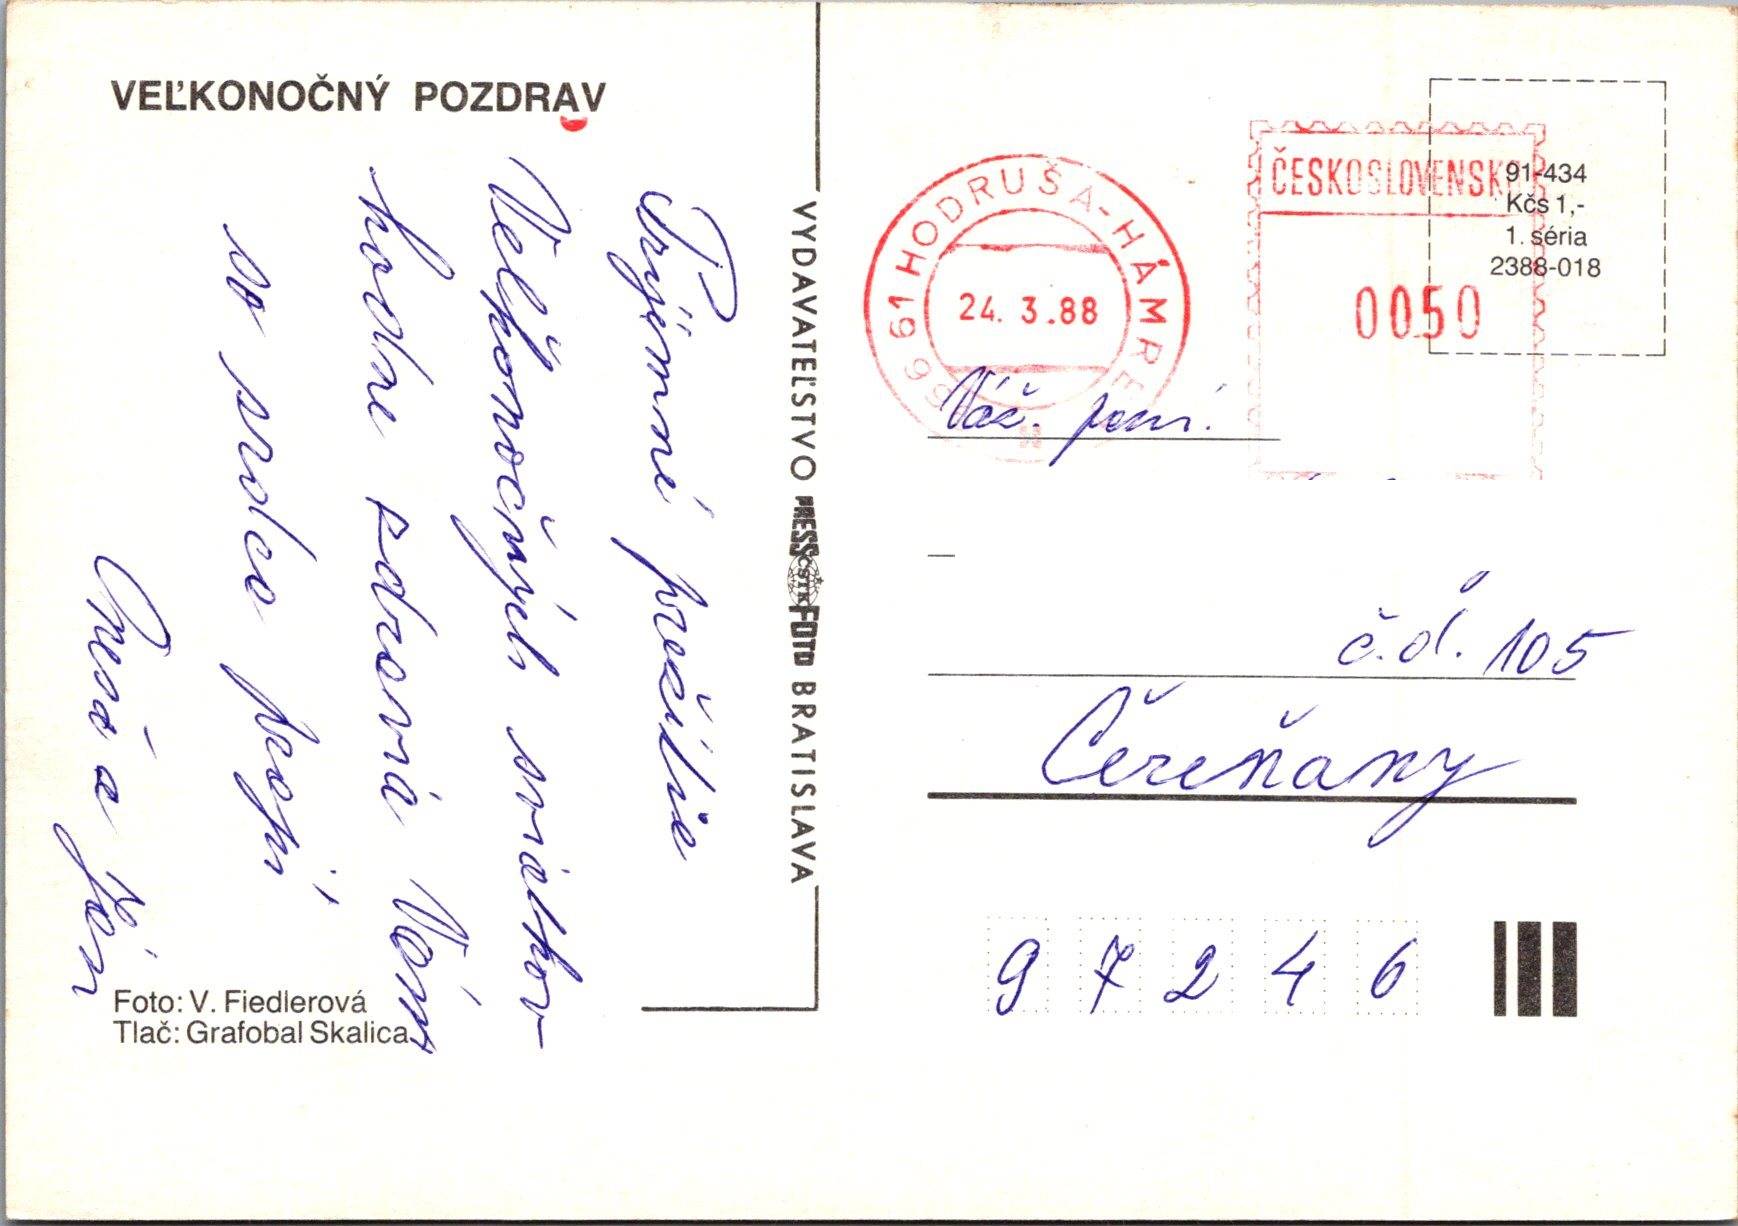 VEĽKONOČNÝ POZDRAV
Príjemné prežitie
Veľkonočných sviatkov
hodne zdravia Vám
zo srdca praje
a Ján
Foto: V. Fiedlerová
Tlač: Grafobal Skalica
VYDAVATEĽSTVO PRESSFOTO BRATISLAVA
ČSTK
966 61 HODRUŠA-HÁMRE
24. 3.88
ČESKOSLOVENSKO
0050
91-434
Kčs 1,-
1. séria
2388-018
Váž. pani.
č.d. 105
Čereňany
97246